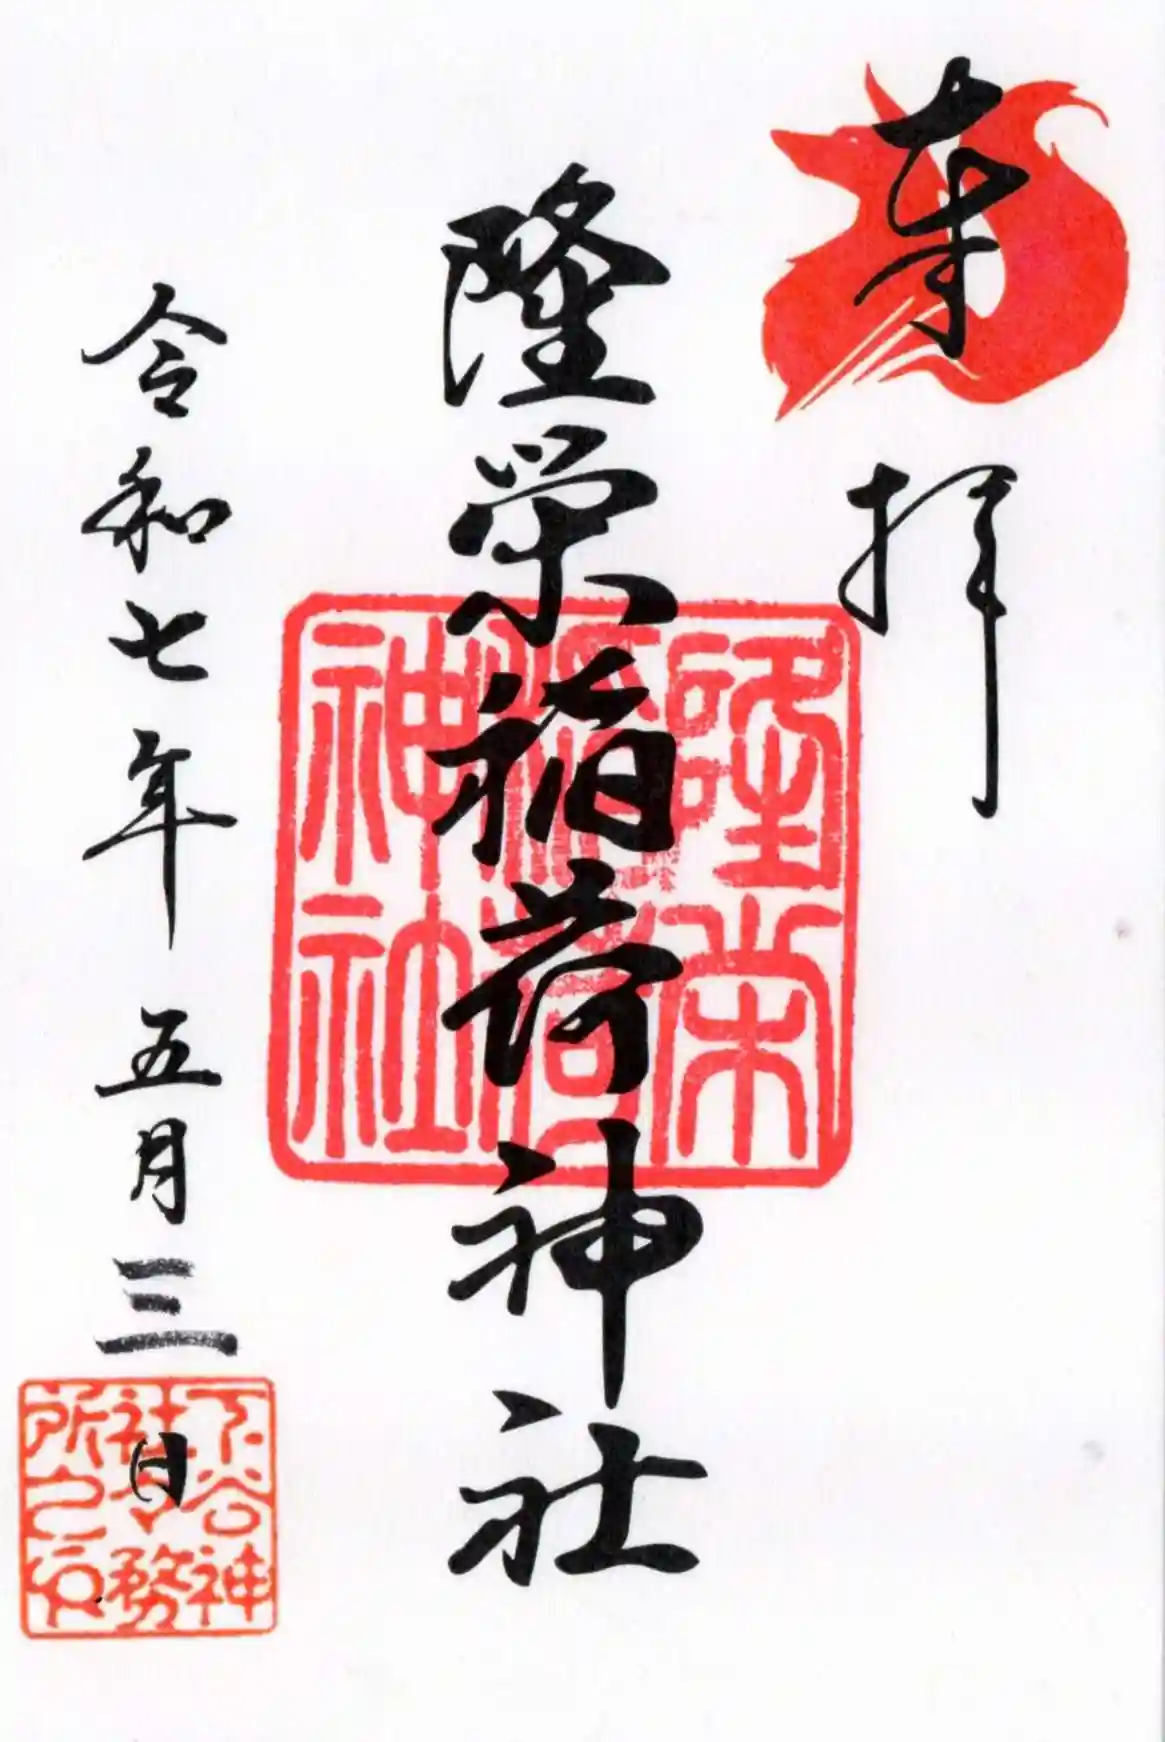 奉拝
隆栄稲荷神社
令和七年五月三日
隆栄
稲荷
神社
下谷神
社社務
所之印